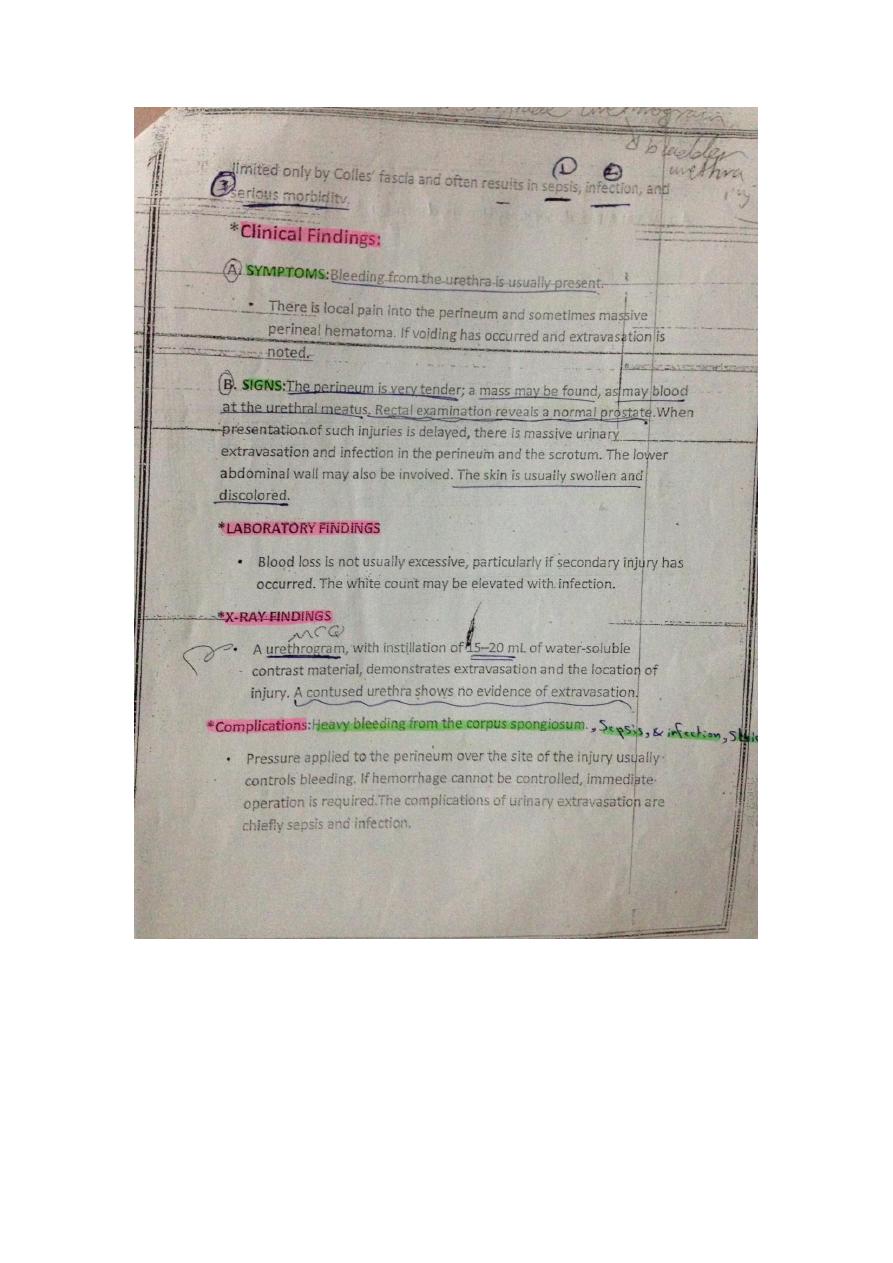 bladder
urethra
① ②
limited only by Colles' fascia and often results in sepsis, infection, and
③ serious morbidity.
*Clinical Findings:
A SYMPTOMS:Bleeding from the urethra is usually present.
• There is local pain into the perineum and sometimes massive
perineal hematoma. If voiding has occurred and extravasation is
noted.
B. SIGNS:The perineum is very tender; a mass may be found, as may blood
at the urethral meatus. Rectal examination reveals a normal prostate.When
presentation of such injuries is delayed, there is massive urinary
extravasation and infection in the perineum and the scrotum. The lower
abdominal wall may also be involved. The skin is usually swollen and
discolored.
*LABORATORY FINDINGS
• Blood loss is not usually excessive, particularly if secondary injury has
occurred. The white count may be elevated with infection.
*X-RAY FINDINGS
MCQ
• A urethrogram, with instillation of 15–20 mL of water-soluble
contrast material, demonstrates extravasation and the location of
injury. A contused urethra shows no evidence of extravasation.
*Complications:Heavy bleeding from the corpus spongiosum. , Sepsis, & infection,
• Pressure applied to the perineum over the site of the injury usually
controls bleeding. If hemorrhage cannot be controlled, immediate
operation is required.The complications of urinary extravasation are
chiefly sepsis and infection.